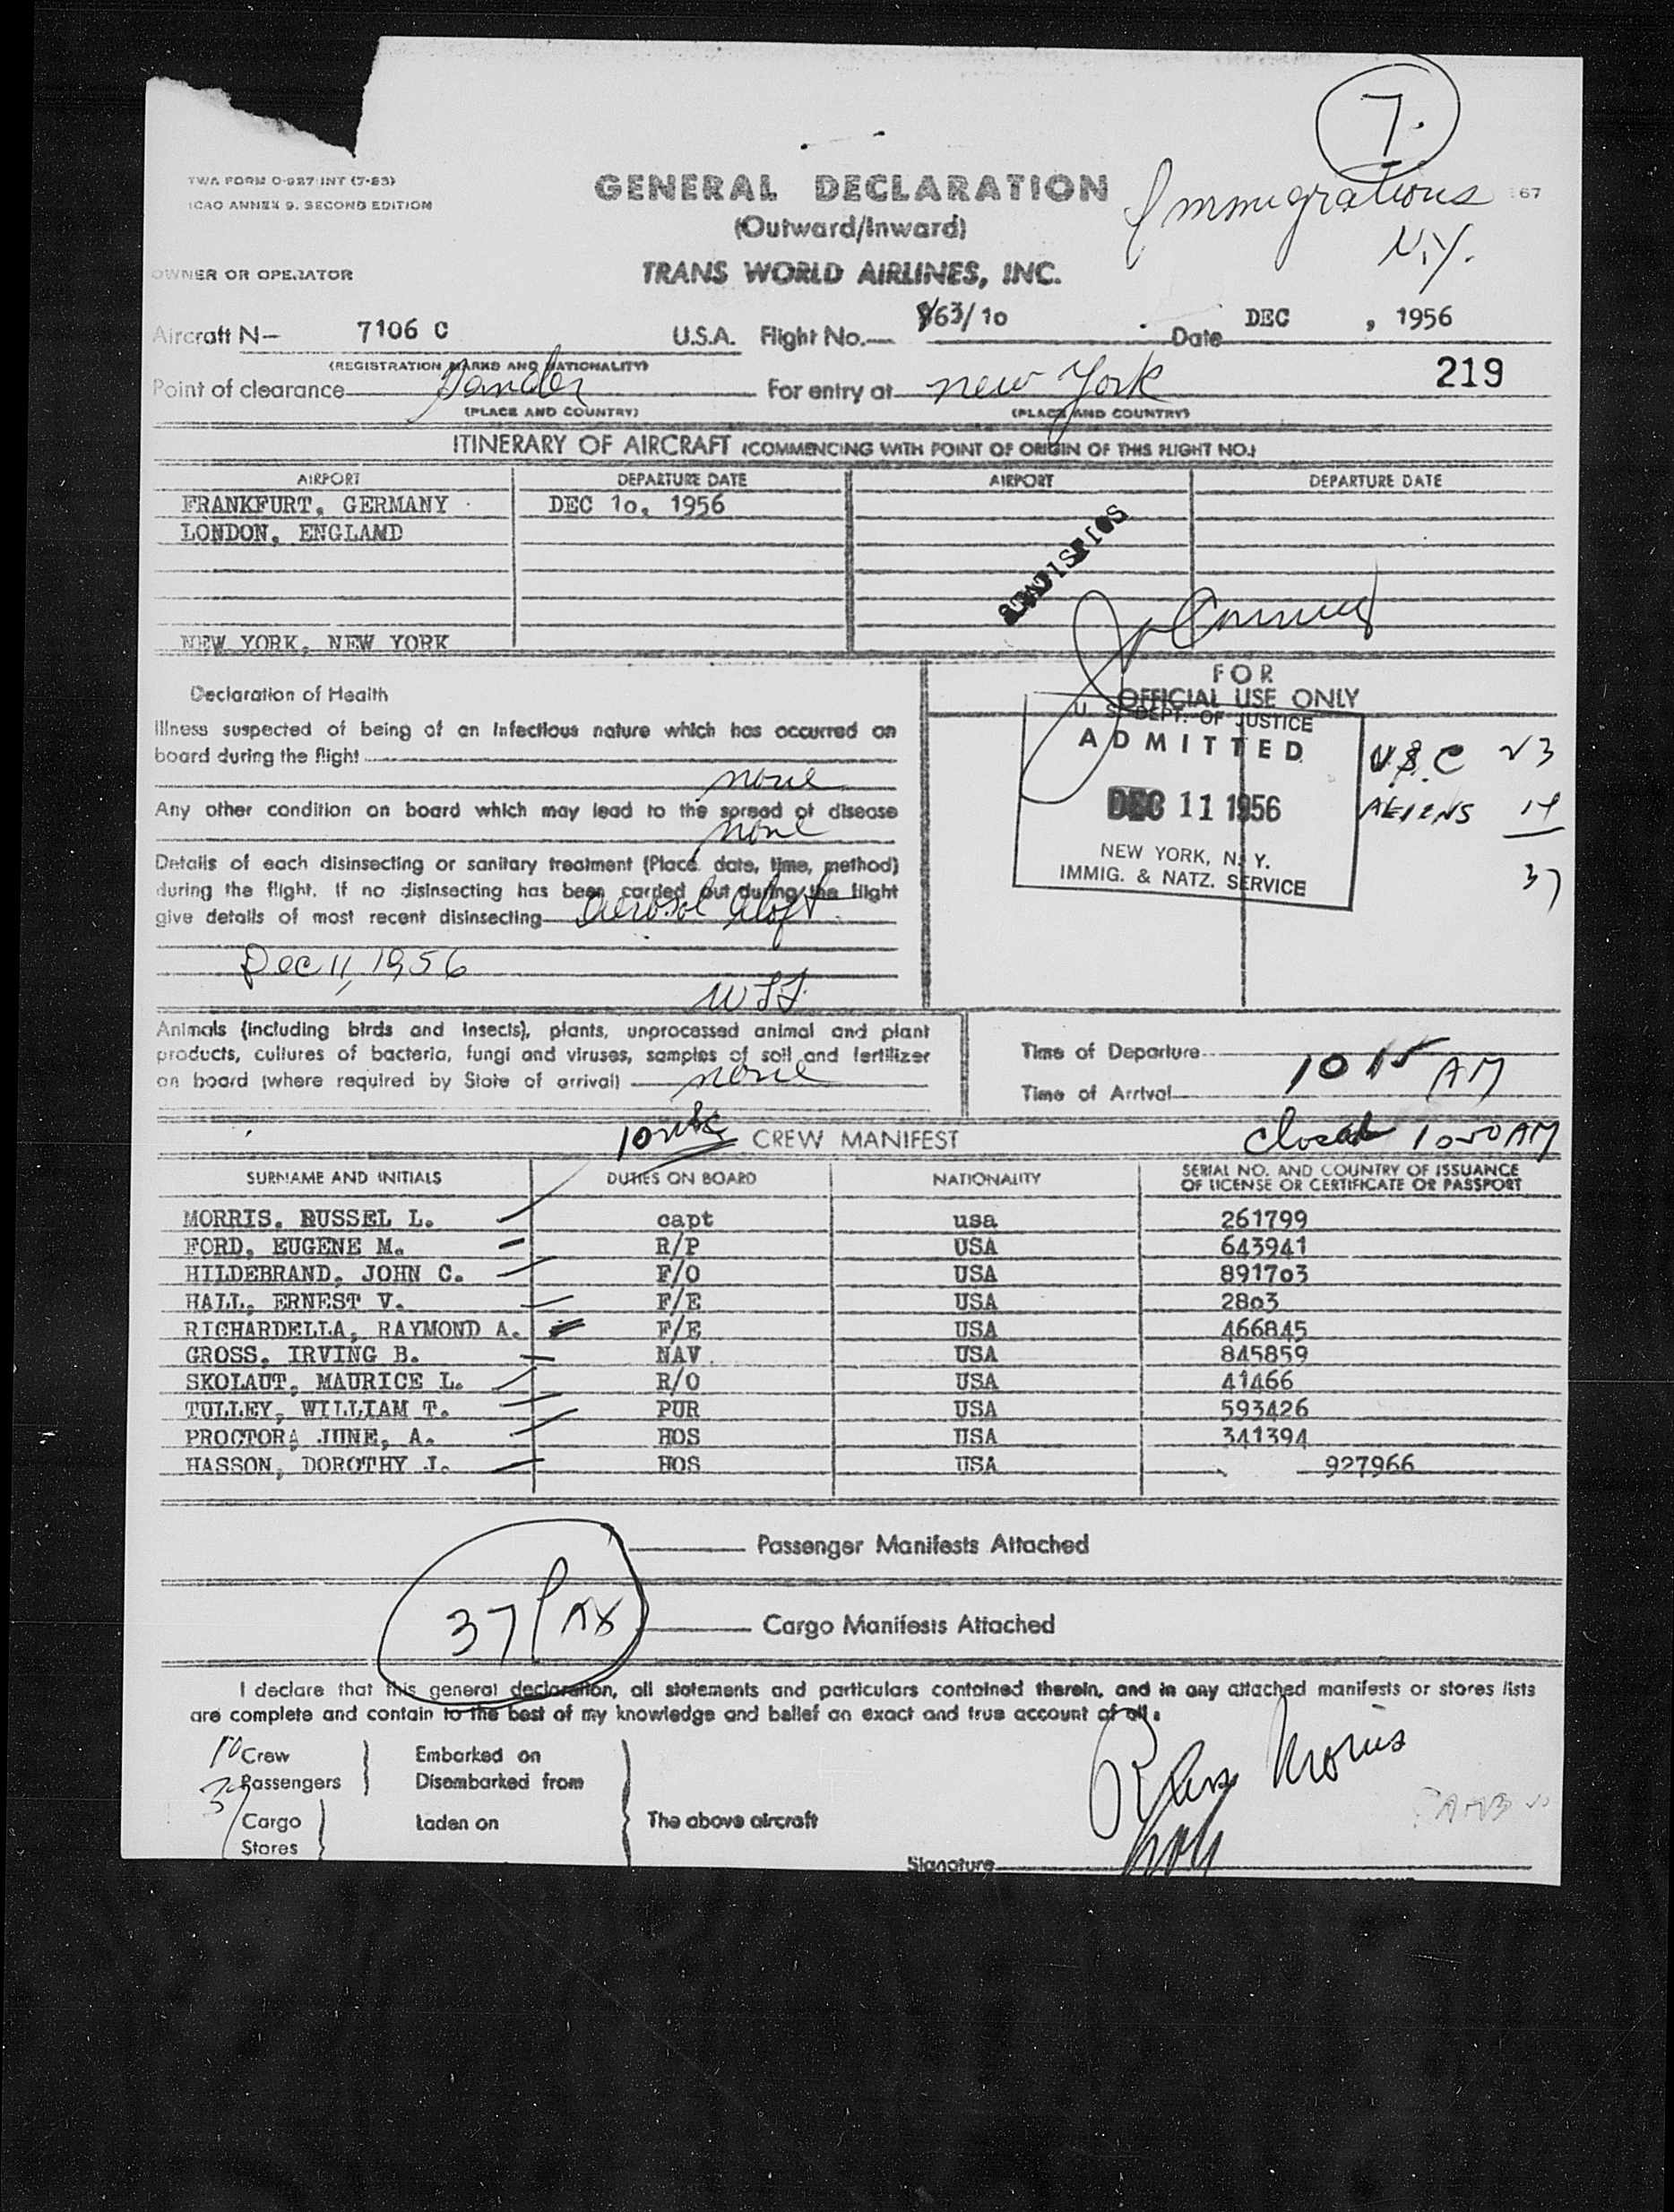 7.
TWA FORM O-987 INT (7-53)
ICAO ANNEX 9. SECOND EDITION
GENERAL DECLARATION
(Outward/Inward)
Immigrations
N.Y.
67
OWNER OR OPERATOR
TRANS WORLD AIRLINES, INC.
Aircraft N— 7106 C U.S.A. Flight No. 963/10 Date DEC , 1956
(REGISTRATION MARKS AND NATIONALITY)
219
Point of clearance Gander For entry at New York
(PLACE AND COUNTRY) (PLACE AND COUNTRY)
ITINERARY OF AIRCRAFT (COMMENCING WITH POINT OF ORIGIN OF THIS FLIGHT NO.)
AIRPORT DEPARTURE DATE AIRPORT DEPARTURE DATE
FRANKFURT, GERMANY DEC 10, 1956
LONDON, ENGLAND
NEW YORK, NEW YORK
Declaration of Health
Illness suspected of being of an infectious nature which has occurred on
board during the flight
none
Any other condition on board which may lead to the spread of disease
none
Details of each disinsecting or sanitary treatment (Place, date, time, method)
during the flight. If no disinsecting has been carried out during the flight
give details of most recent disinsecting Aerosol Aloft
Dec 11, 1956
FOR
OFFICIAL USE ONLY
U. S. DEPT. OF JUSTICE
ADMITTED
DEC 11 1956
NEW YORK, N. Y.
IMMIG. & NATZ. SERVICE
U.S.C 23
ALIENS 14
37
Animals (including birds and insects), plants, unprocessed animal and plant
products, cultures of bacteria, fungi and viruses, samples of soil and fertilizer
on board (where required by State of arrival) none
Time of Departure
Time of Arrival 10 15 AM
Closed 1050 AM
10 USC CREW MANIFEST
SURNAME AND INITIALS DUTIES ON BOARD NATIONALITY SERIAL NO. AND COUNTRY OF ISSUANCE
OF LICENSE OR CERTIFICATE OR PASSPORT
MORRIS, RUSSEL L. capt usa 261799
FORD, EUGENE M. R/P USA 643941
HILDEBRAND, JOHN C. F/O USA 891703
HALL, ERNEST V. F/E USA 2803
RICHARDELLA, RAYMOND A. F/E USA 466845
GROSS, IRVING B. NAV USA 845859
SKOLAUT, MAURICE L. R/O USA 41466
TULLEY, WILLIAM T. PUR USA 593426
PROCTOR, JUNE, A. HOS USA 341394
HASSON, DOROTHY J. HOS USA 927966
Passenger Manifests Attached
37 Pax
Cargo Manifests Attached
I declare that this general declaration, all statements and particulars contained therein, and in any attached manifests or stores lists
are complete and contain to the best of my knowledge and belief an exact and true account of all.
10 Crew Embarked on
37 Passengers Disembarked from
Cargo Laden on The above aircraft
Stores
Russ Morris
Signature